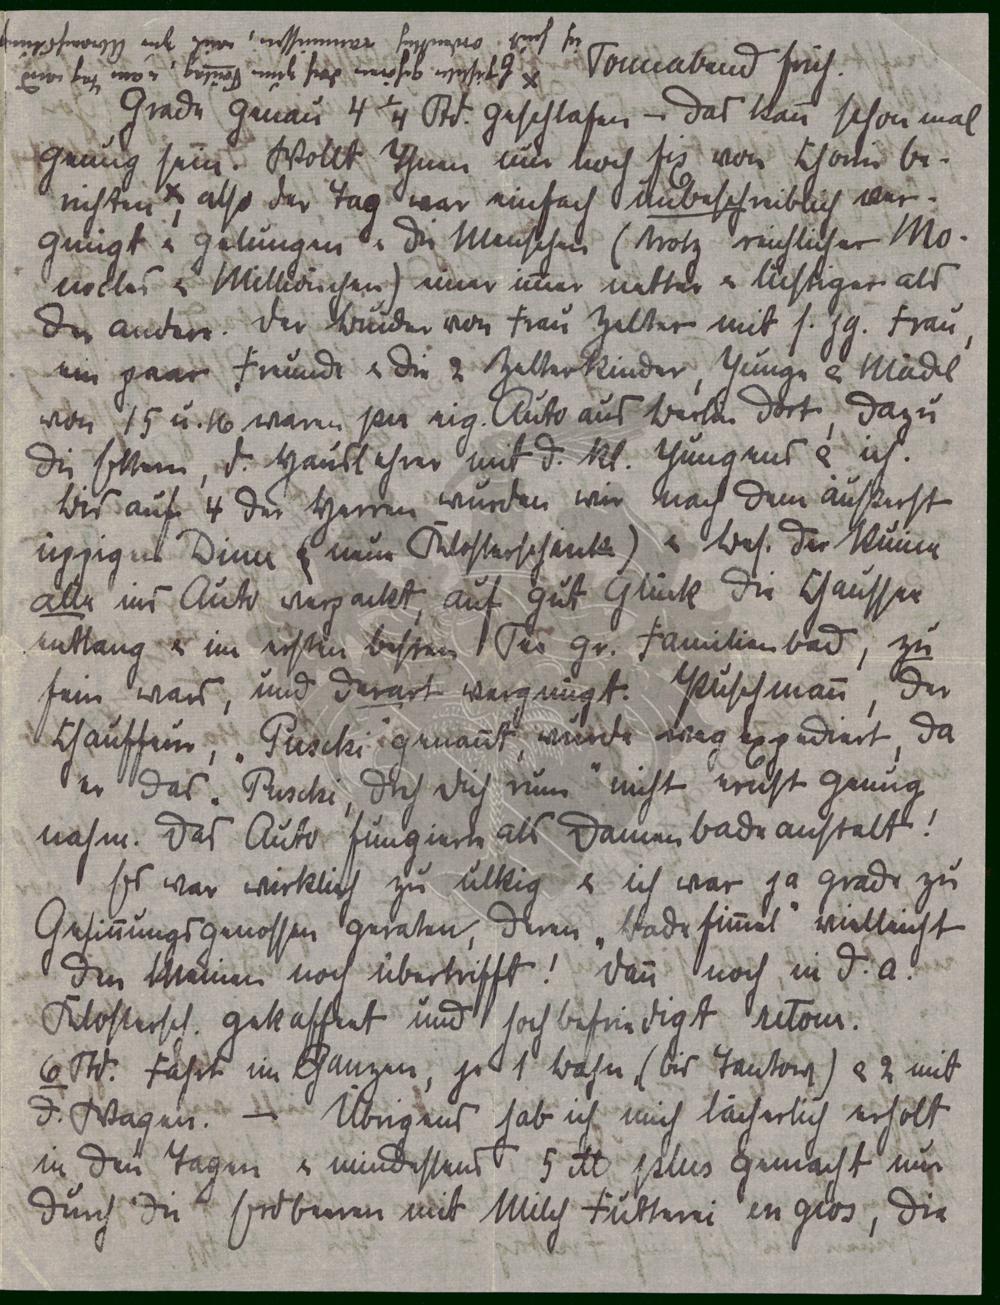 Sonnabend früh.
Grade genau 4 1/4 Std. geschlafen – das kann schon mal
genug sein. Wollt Ihnen nur noch fix von Chorin be-
richten x, also der Tag war einfach unbeschreiblich ver-
gnügt & gelungen & die Menschen (trotz reichlicher Mo-
nocles &) einer immer netter & lustiger als
der andere. Der Bruder von Frau Zelter mit s. jg. Frau,
ein paar Freunde & die 2 Zelterkinder, Junge & Mädel
von 15 u. 16 waren per eig. Auto aus Berlin dort, dazu
die Eltern, d. Hauslehrer mit d. kl. Jungens & ich.
Bis auf 4 der Herren wurden wir nach dem äußerst
üppigen Diner (neue Klosterschenke) & Bes. der Ruine
alle ins Auto verpackt, auf gut Glück die Chaussee
entlang & im ersten besten See gr. Familienbad, zu
fein wars, und derart vergnügt. Puschmann, der
Chauffeur, „Puschi" genannt, wurde weg expediert, da
er das „Puschi, dreh dich rum" nicht ernst genug
nahm. Das Auto fungierte als Damenbadeanstalt!
Es war wirklich zu ulkig & ich war ja grade zu
Gesinnungsgenossen geraten, deren „Badefimmel" vielleicht
den Meinen noch übertrifft! Dann noch in d. a.
Klostersch. gekaffeet und hochbefriedigt retour.
6 Std. Fahrt im Ganzen, je 1 Bahn (bis Tantow) & 2 mit
d. Wagen. — Übrigens hab ich mich lächerlich erholt
in den Tagen & mindestens 5 ℔ plus gemacht nur
durch die Erdbeeren mit Milch Futterei en gros, die